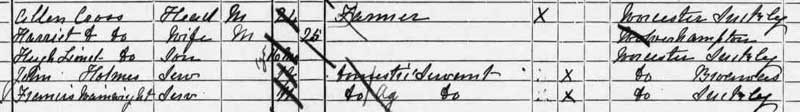 Allen Cross Head M Farmer X Worcester Suckley
Harriet E do Wife M 25 Wolverhampton
Hugh Lionel do Son Worcester Suckley
John Holmes Serv Domestic Servant X do
Francis Wainwright Serv do Ag do X do Suckley